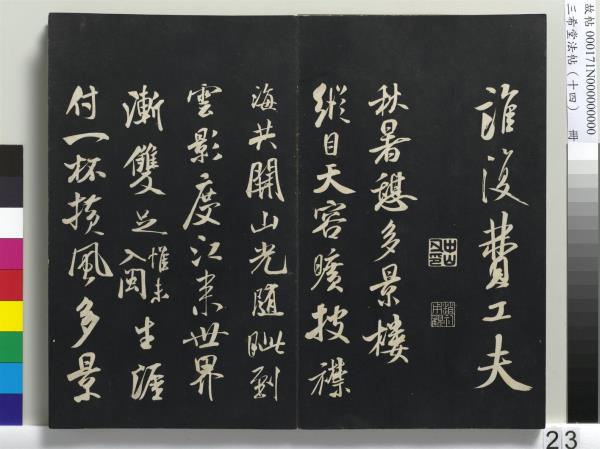 故帖 000171N000000000
三希堂法帖（十四） 冊
誰復費工夫
秋暑憩多景樓
縱目天容曠披襟
海共開山光隨眦到
雲影度江來世界
漸雙足惟未入閩生涯
付一杯橫風多景
23